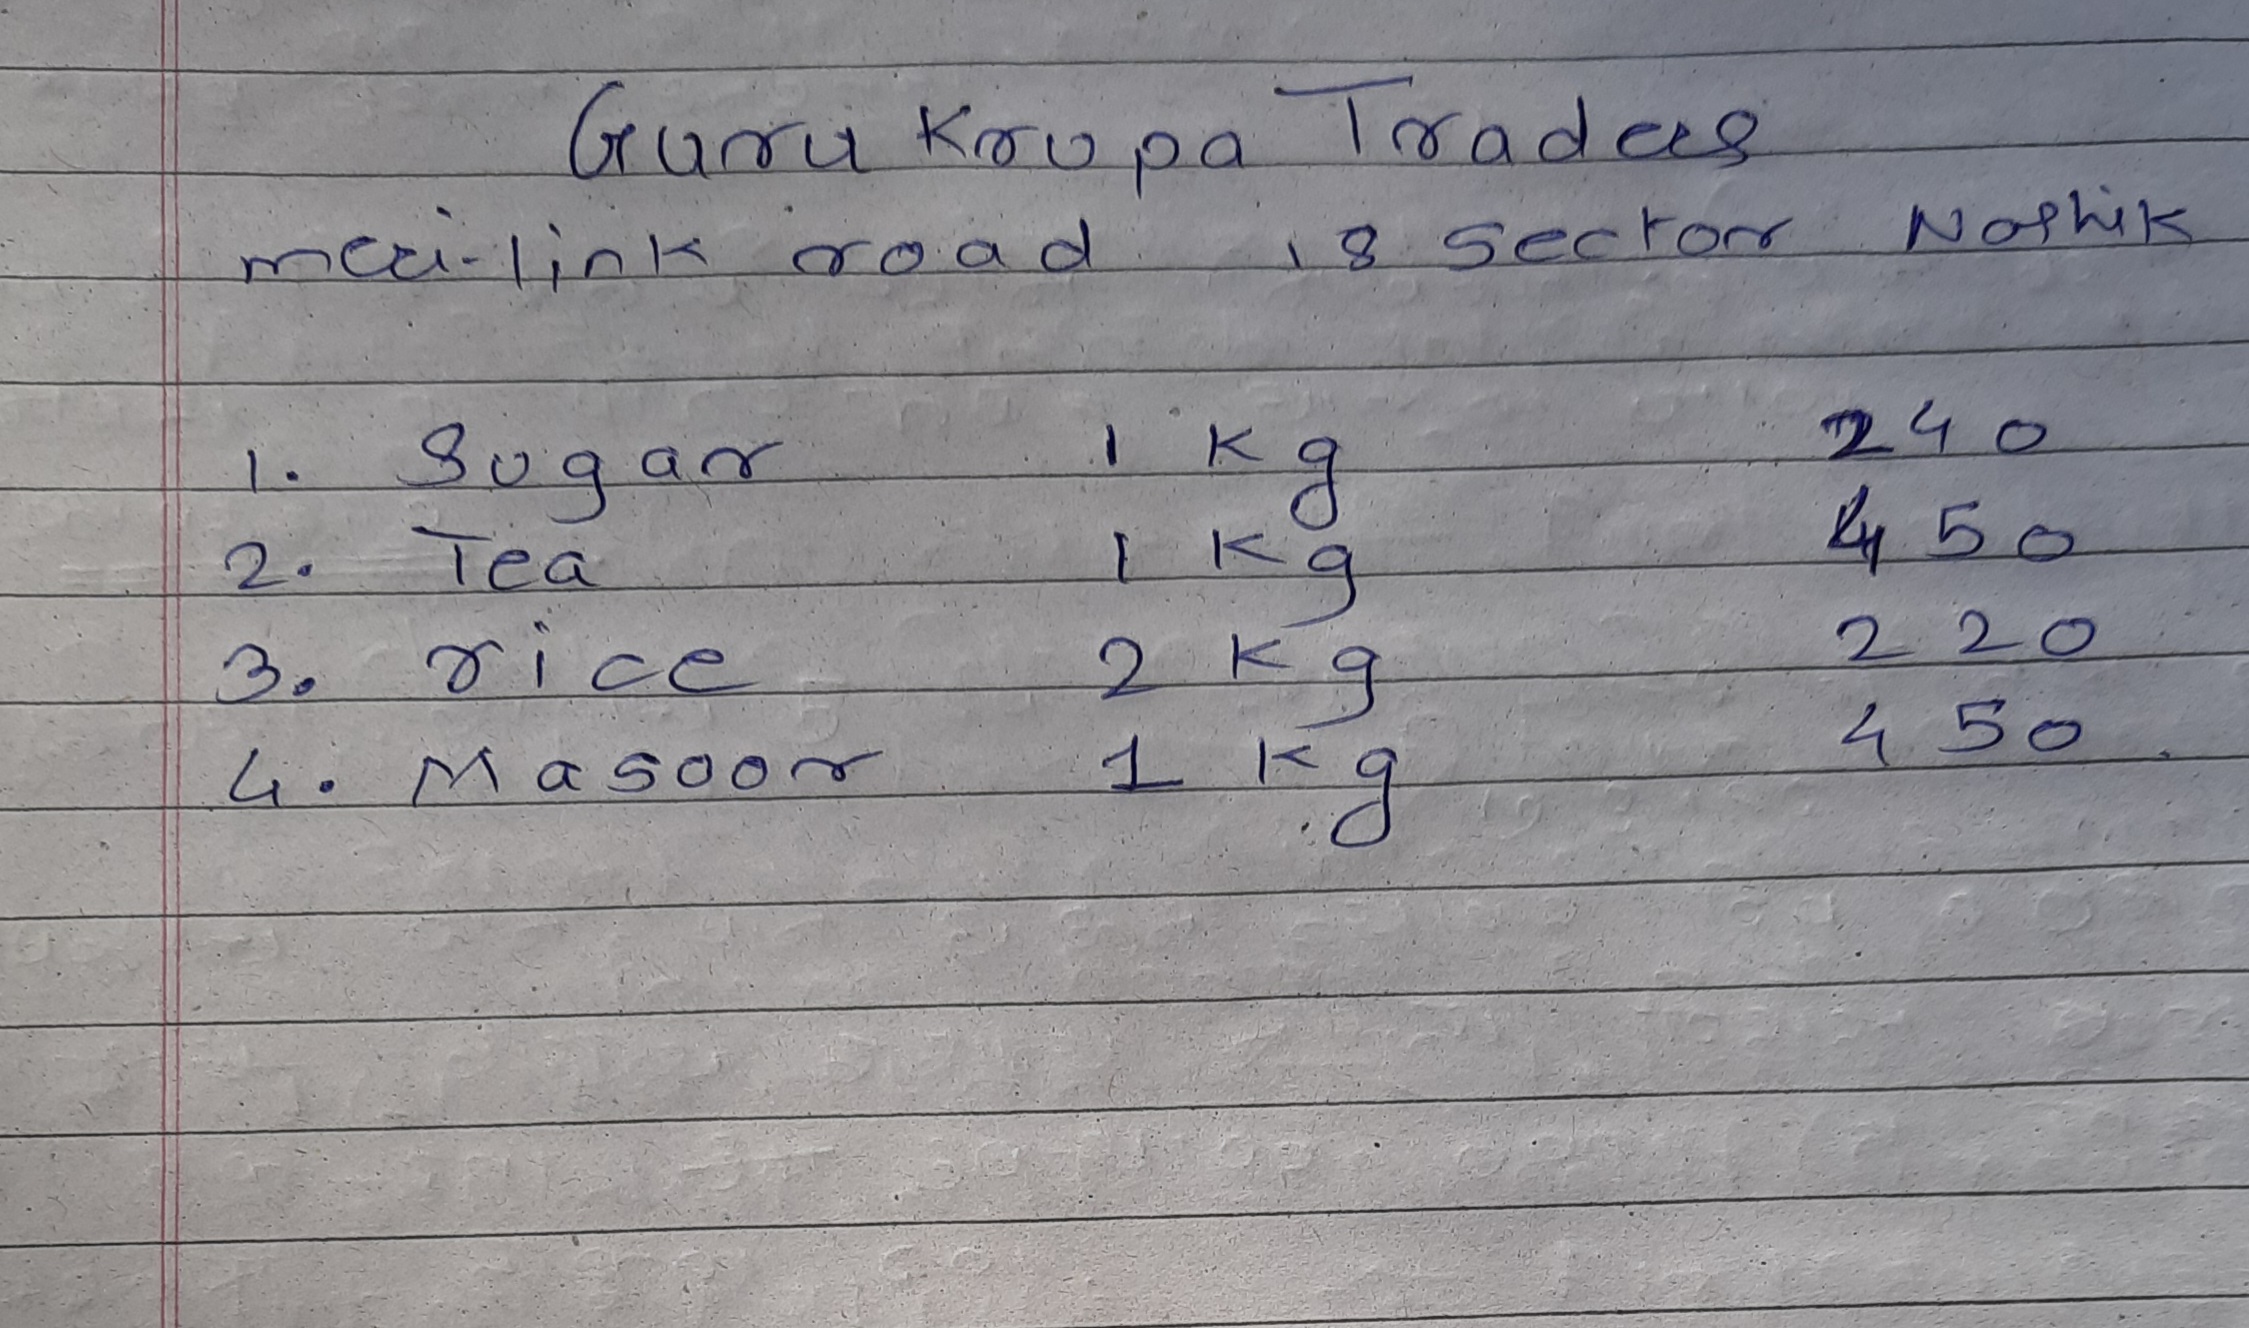 Guru Krupa Traders
meri-link road 18 sector Nashik
1. Sugar 1 kg 240
2. Tea 1 kg 450
3. rice 2 kg 220
4. Masoor 1 kg 450